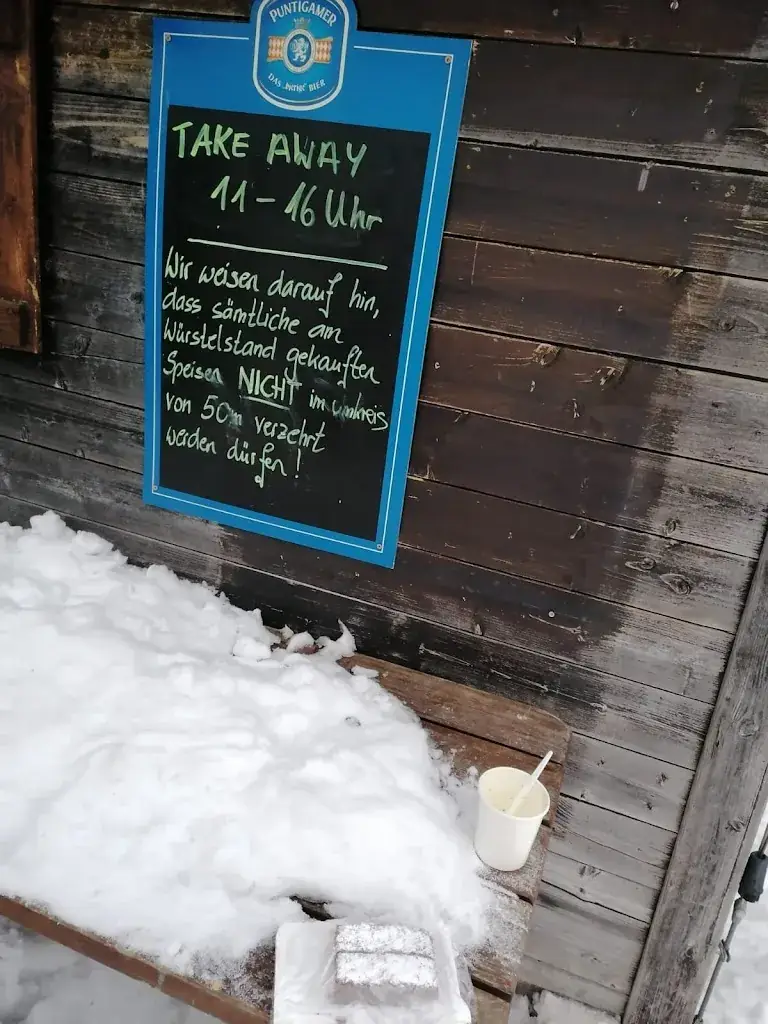 PUNTIGAMER
DAS „BIERIGE" BIER
TAKE AWAY
11 – 16 Uhr
Wir weisen darauf hin,
dass sämtliche am
Würstelstand gekauften
Speisen NICHT im umkreis
von 50m verzehrt
werden dürfen!